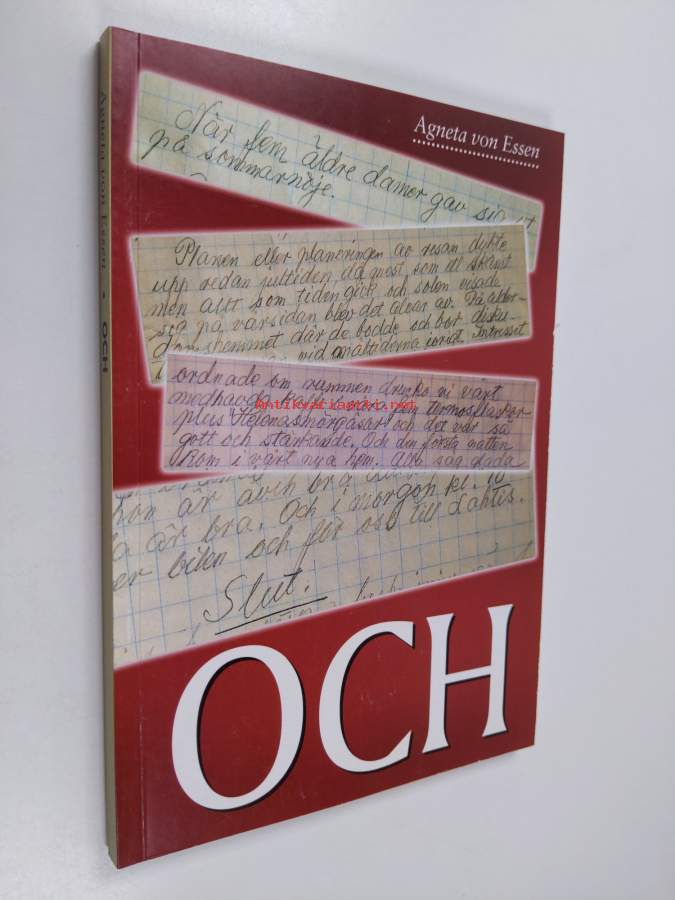 Agneta von Essen • OCH
Agneta von Essen
När fem äldre damer gav sig ut
på sommarnöje.
Planen eller planeringen av resan dykte
upp redan jultiden, då mest som ett skämt
men allt som tiden gick och solen visade
sig på vårsidan blev det allvar av. På ålder-
domshemmet där de bodde och bor disku-
vid måltiderna ivrigt. Intresset
ordnade om rummen dracks ni vårt
medhavda termosflaskor
plus Helenas smörgåsar och det var så
gott och stärkande. Och den första natten
kom i vårt nya hem. Alla såg glada
hon är även bra
är bra. Och i morgon kl. 10
er bilen och för oss till Lahtis.
Slut.
OCH
antikvariaatti.net